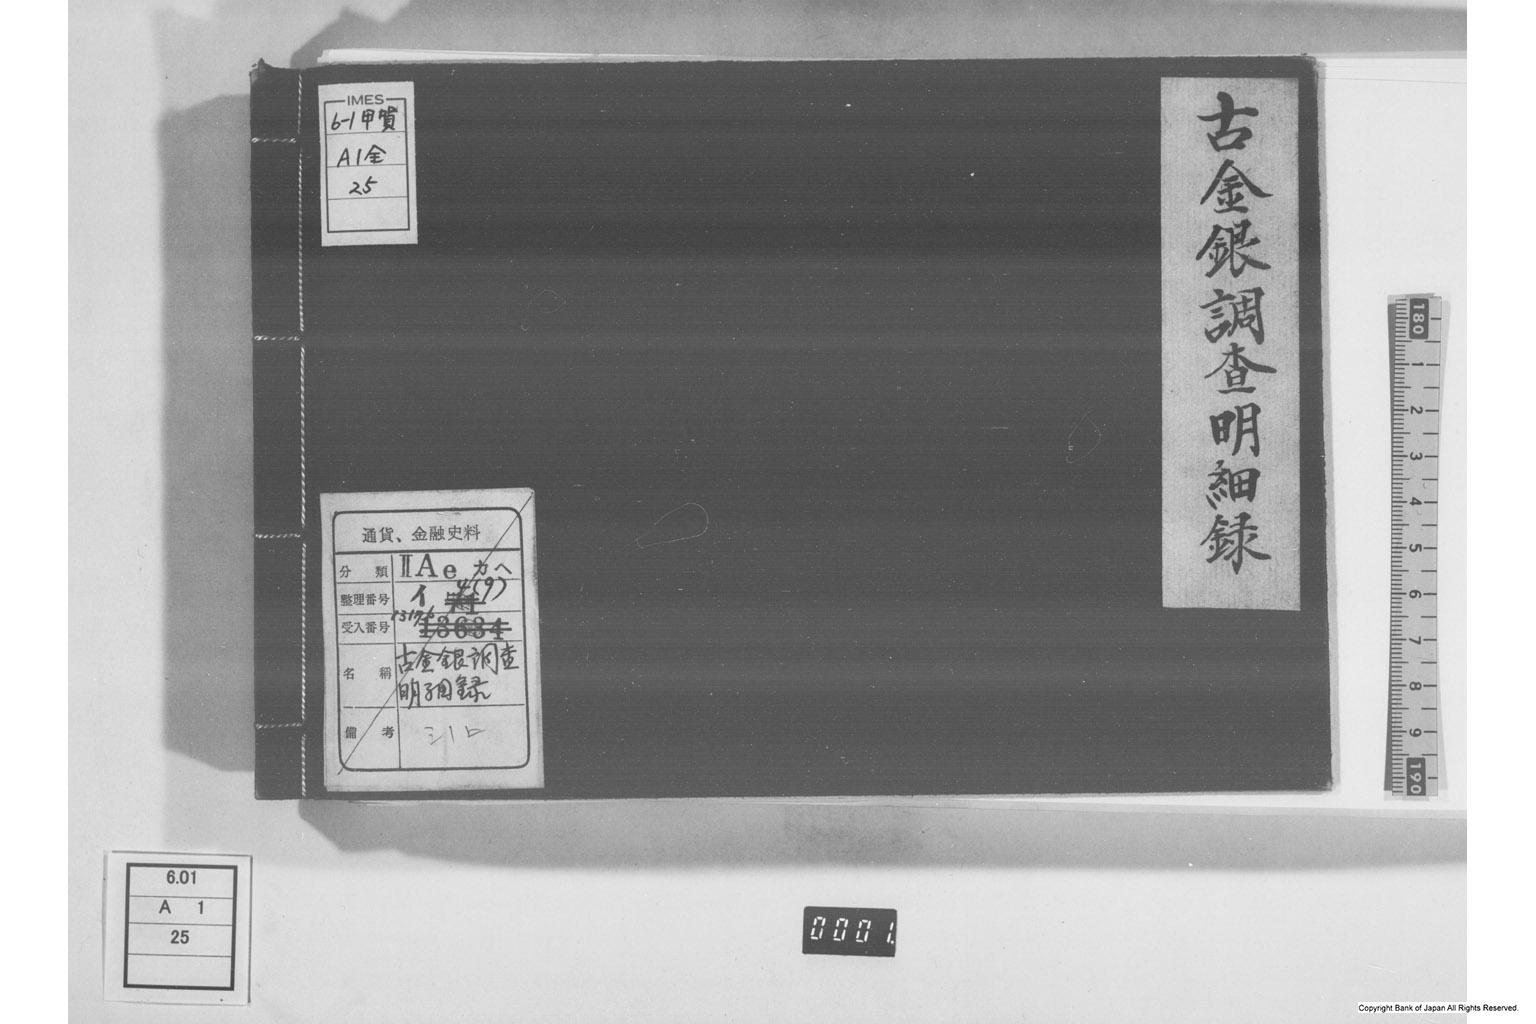 古金銀調査明細録
IMES
6-1甲貨
A1全
25
通貨、金融史料
分類 ⅡAe カヘ
整理番号 イ 4(9)
受入番号 13634
名稱 古金銀調査
明細録
備考
6.01
A 1
25
0001
180
1
2
3
4
5
6
7
8
9
190
Copyright Bank of Japan All Rights Reserved.